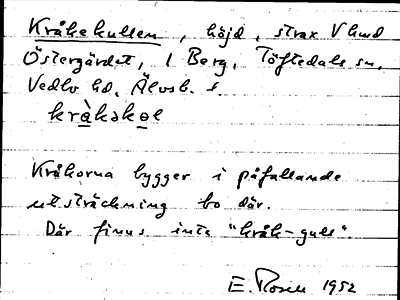 Kråkekullen, höjd, strax V hmd
Östergärdet, 1 Berg, Töftedals sn,
Vedbo hd, Älvsb. l.
kràkəkəl
Kråkorna bygger i påfallande
utsträckning bo där.
Där finns inte "kråk-gull".
E. Rosell 1952